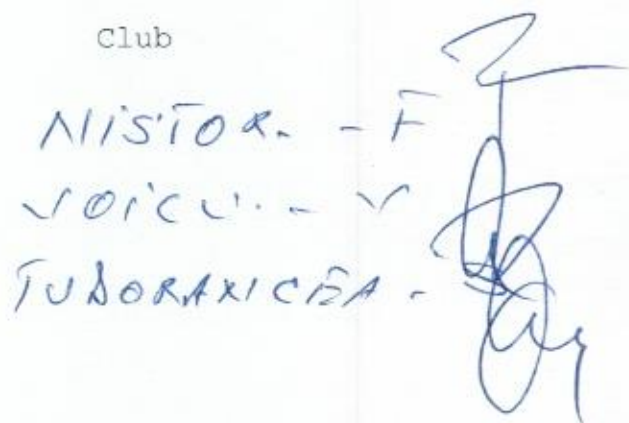 Club
NISTOR. - F
VOICU. - V
TUDORAXICEA -